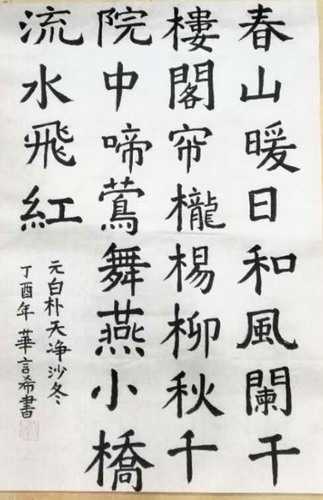 春山暖日和風闌干
樓閣帘櫳楊柳秋千
院中啼鶯舞燕小橋
流水飛紅
元白朴天净沙冬
丁酉年 華言希書